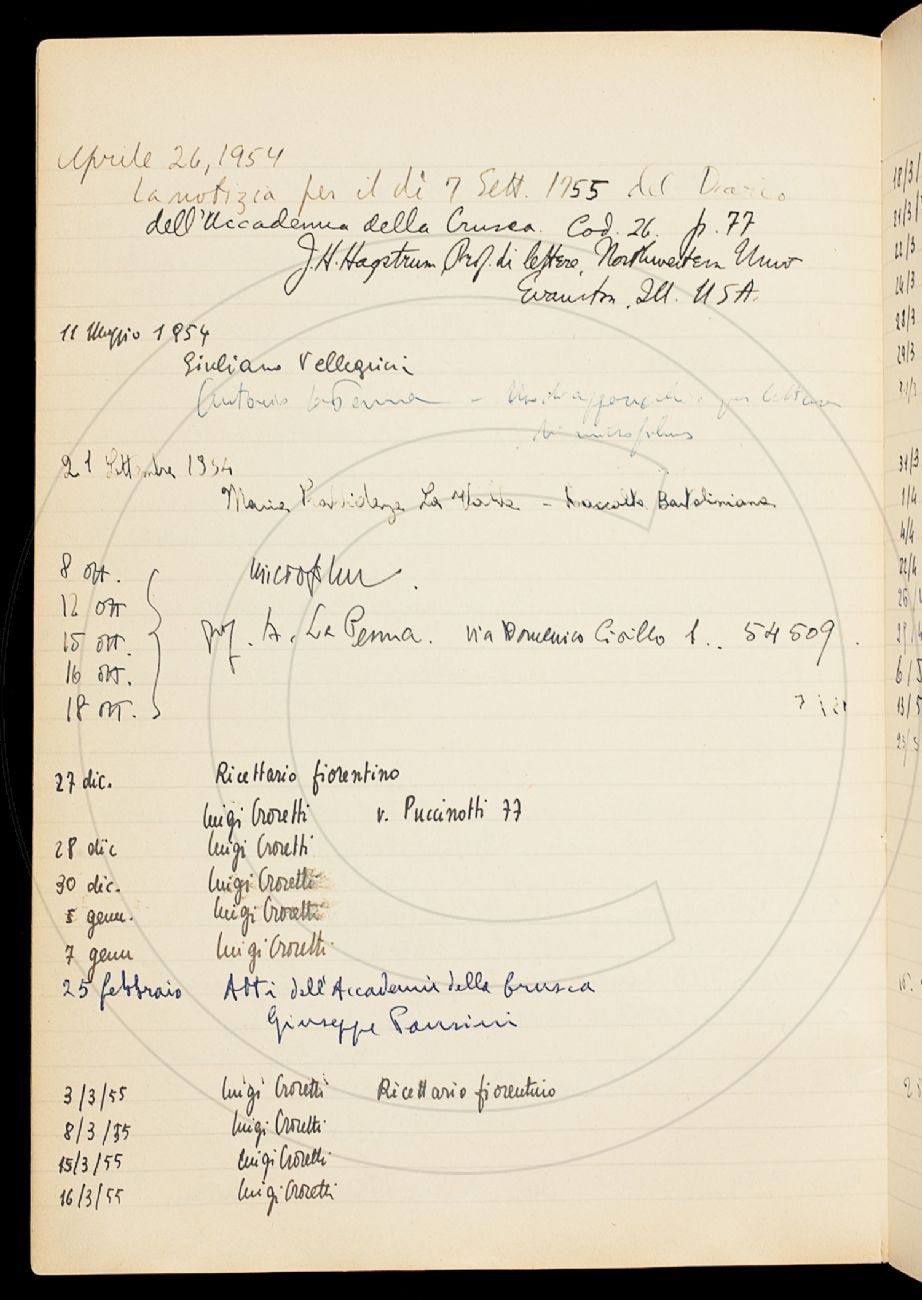 Aprile 26, 1954
La notizia per il dì 7 Sett. 1755 del Diario
dell'Accademia della Crusca. Cod. 26. p. 77
J. H. Hagstrum Prof. di lettere, Northwestern Univ
Evanston, Ill. USA.
11 Maggio 1954
Giuliano Pellegrini
Antonio La Penna - per lettura
di microfilms
21 Settembre 1954
Maria La Valva - Raccolta Bartoliniana
8 ott. microfilm.
12 ott
15 ott. prof. A. La Penna. via Domenico Cirillo 1.. 54509.
16 ott.
18 ott.
27 dic. Ricettario fiorentino
Luigi Crocetti v. Puccinotti 77
28 dic Luigi Crocetti
30 dic. Luigi Crocetti
5 genn. Luigi Crocetti
7 genn Luigi Crocetti
25 febbraio Atti dell'Accademia della Crusca
Giuseppe Pansini
3/3/55 Luigi Crocetti Ricettario fiorentino
8/3/55 Luigi Crocetti
15/3/55 Luigi Crocetti
16/3/55 Luigi Crocetti
18/3/
21/3/
22/3
24/3
28/3
29/3
31/3
1/4
4/4
22/4
6/5
13/5
23/5